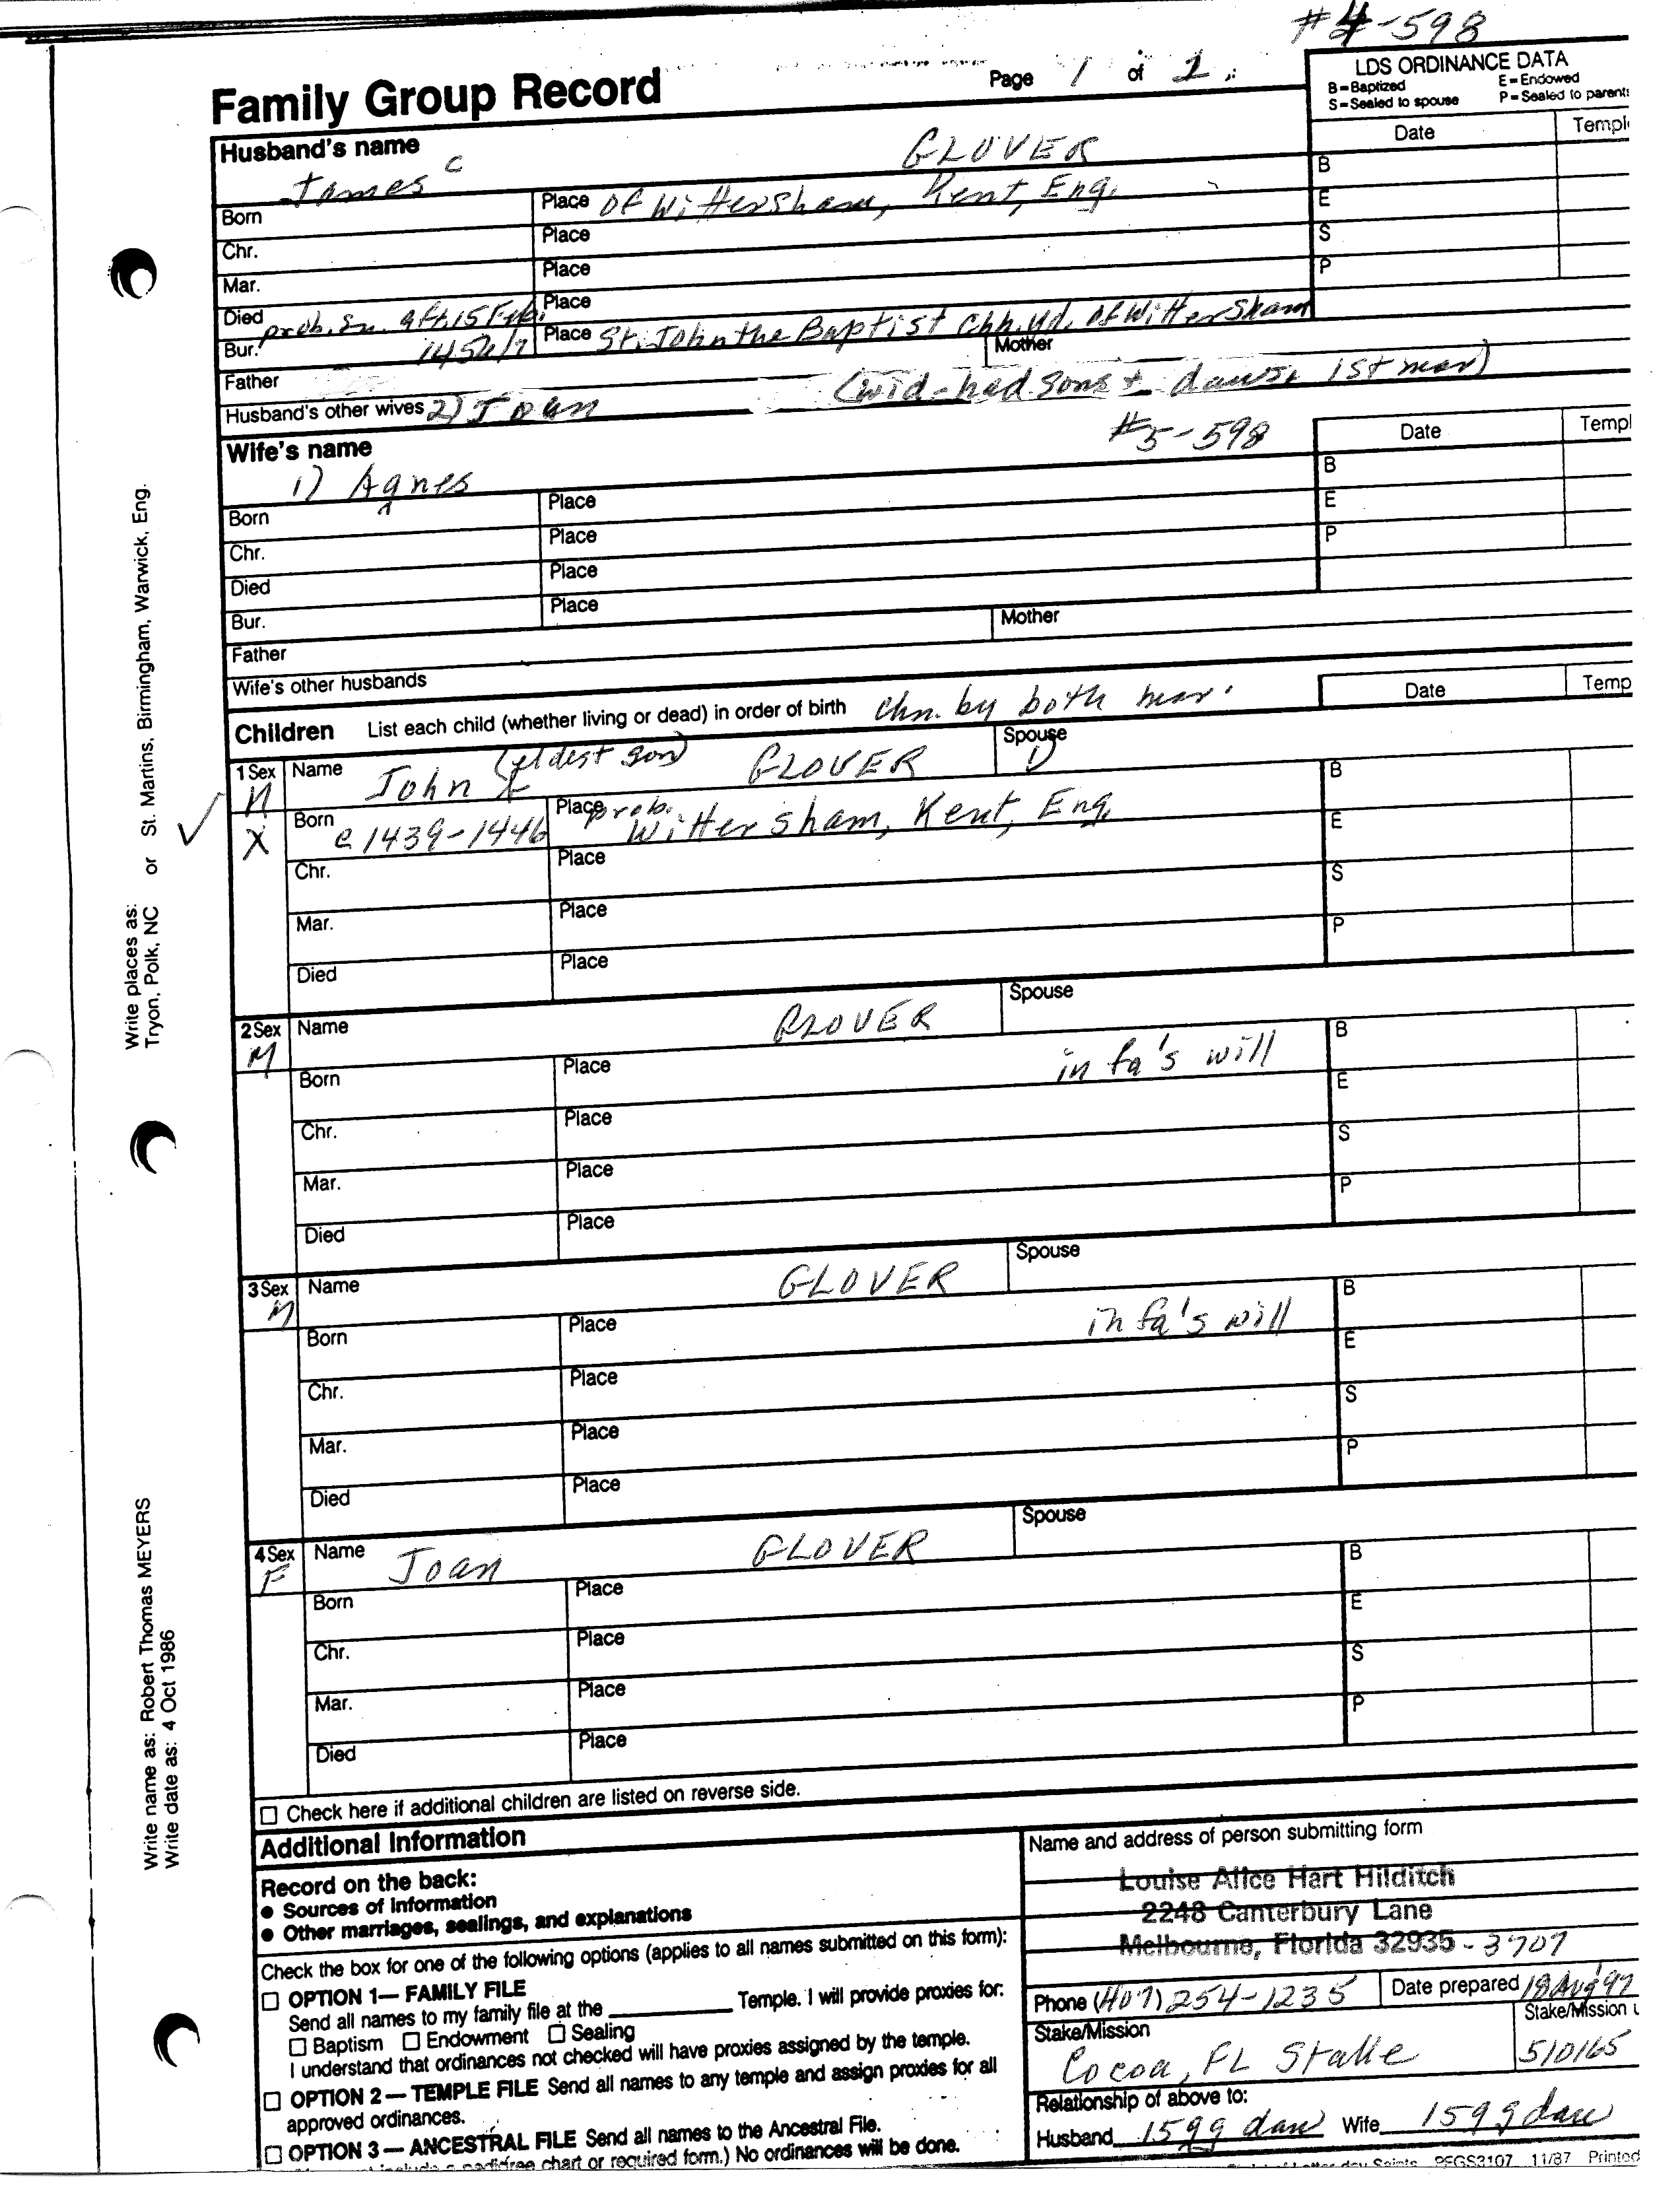 #4-598
Family Group Record
Page 1 of 1
LDS ORDINANCE DATA
B=Baptized E=Endowed
S=Sealed to spouse P=Sealed to parents
Husband's name
James GLOVER
Date Templ
B
Born Place of Wittersham, Kent, Eng.
E
Chr. Place
S
Mar. Place
P
Died Place
prob. sn. aft. 15 Feb.
Bur. 1456/7 Place St. John the Baptist Chh. Yd. of Wittersham
Father Mother
Husband's other wives 2) Joan (wid-had sons + daus. 1st mar)
Wife's name #5-598
1) Agnes
Date Templ
B
Born Place
E
Chr. Place
P
Died Place
Bur. Place
Father Mother
Wife's other husbands
Children List each child (whether living or dead) in order of birth chn. by both mar.
Date Temp
1 Sex M Name John (eldest son) GLOVER Spouse 1)
B
X Born c 1439-1446 Place prob. Wittersham, Kent, Eng.
E
Chr. Place
S
Mar. Place
P
Died Place
2 Sex M Name GLOVER Spouse
B
Born Place in fa's will
E
Chr. Place
S
Mar. Place
P
Died Place
3 Sex M Name GLOVER Spouse
B
Born Place in fa's will
E
Chr. Place
S
Mar. Place
P
Died Place
4 Sex F Name Joan GLOVER Spouse
B
Born Place
E
Chr. Place
S
Mar. Place
P
Died Place
☐ Check here if additional children are listed on reverse side.
Additional Information
Record on the back:
• Sources of information
• Other marriages, sealings, and explanations
Check the box for one of the following options (applies to all names submitted on this form):
☐ OPTION 1— FAMILY FILE
Send all names to my family file at the ____ Temple. I will provide proxies for:
☐ Baptism ☐ Endowment ☐ Sealing
I understand that ordinances not checked will have proxies assigned by the temple.
☐ OPTION 2 — TEMPLE FILE Send all names to any temple and assign proxies for all
approved ordinances.
☐ OPTION 3 — ANCESTRAL FILE Send all names to the Ancestral File.
chart or required form.) No ordinances will be done.
Name and address of person submitting form
Louise Alice Hart Hilditch
2248 Canterbury Lane
Melbourne, Florida 32935-3707
Phone (407) 254-1235 Date prepared 18 Aug '97
Stake/Mission Stake/Mission u
Cocoa, FL Stake 510165
Relationship of above to:
Husband 15gg dau Wife 15gg dau
PFGS3107 11/87 Printed
Write places as: Tryon, Polk, NC or St. Martins, Birmingham, Warwick, Eng.
Write name as: Robert Thomas MEYERS
Write date as: 4 Oct 1986